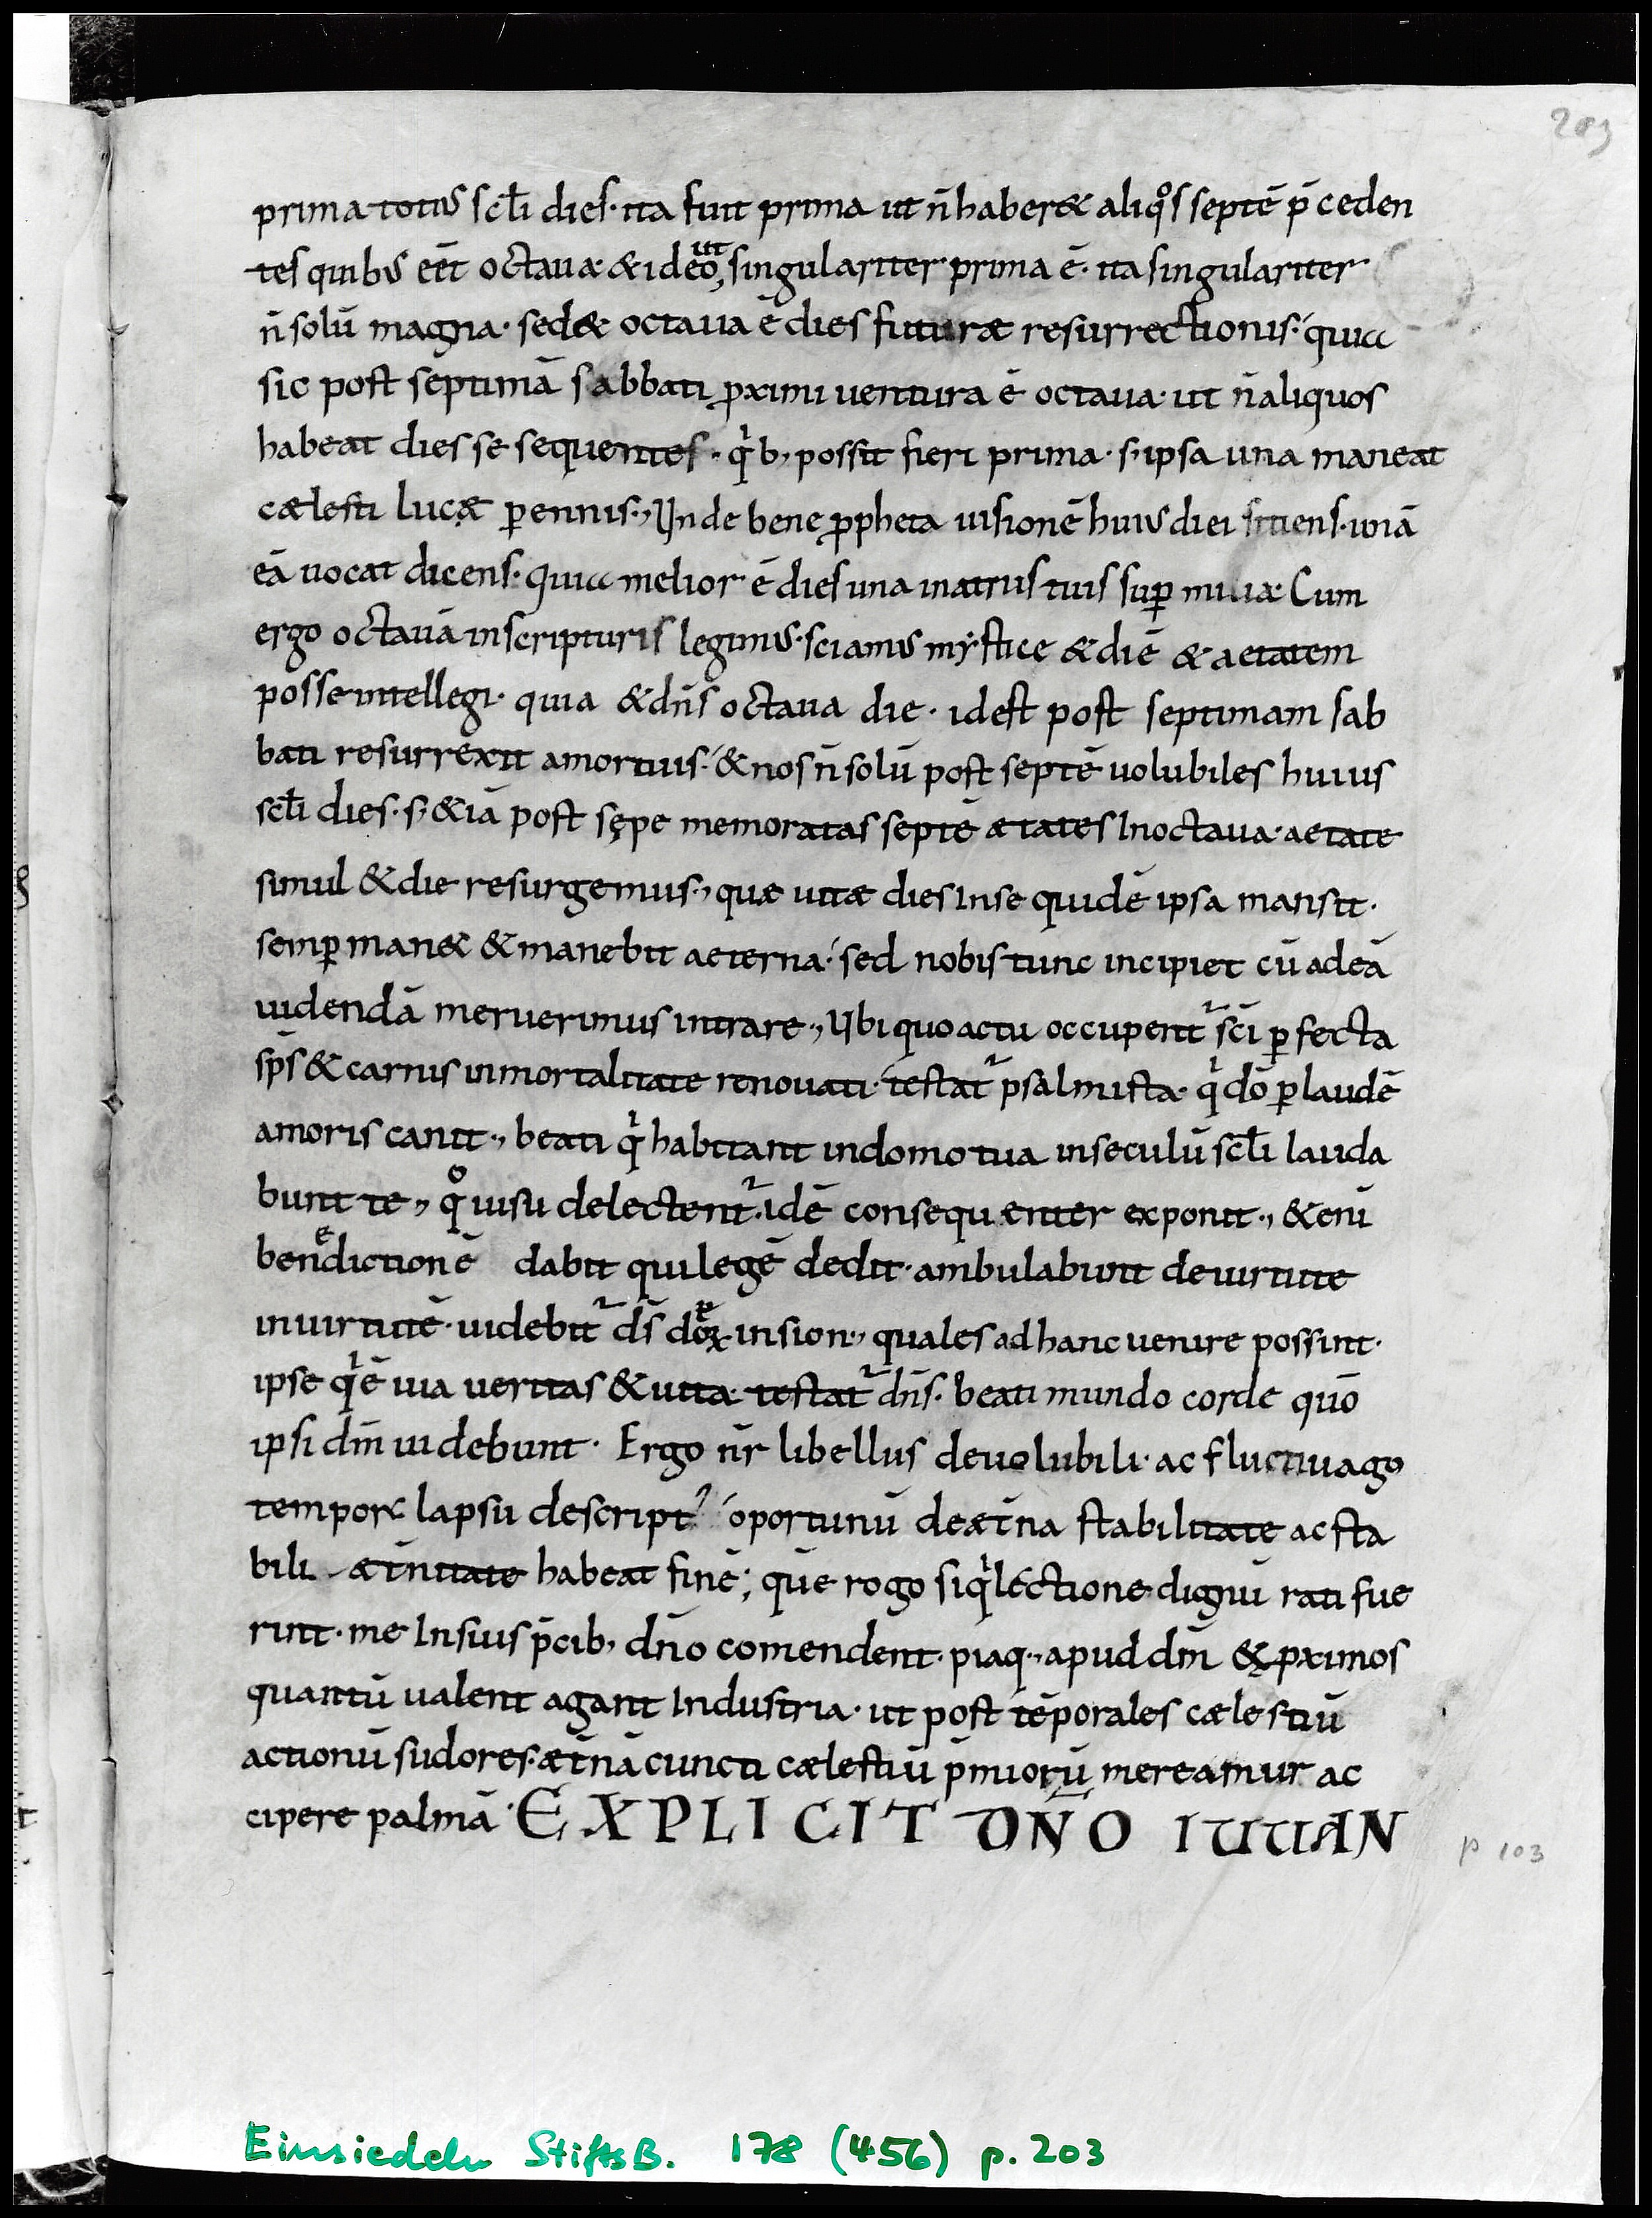 203
prima totius sc̄li dies· ita fuit prima ut n̄ haber& aliqͦs septē p̄ceden
tes quibus eēt octaua· & ideo ut singulariter prima ē· ita singulariter
n̄ solū magna· sed& octaua ē dies futuræ resurrectionis· quia
sic post septimā sabbati ꝓximi uentura ē octaua· ut n̄ aliquos
habeat dies se sequentes· qͥb; possit fieri prima· s; ipsa una maneat
cælesti lucæ ꝑennis·, Unde bene ꝓpheta uisionē huius diei sitiens· unā
eā uocat dicens· quia melior ē dies una in atriis tuis suꝑ milia· Cum
ergo octauā in scripturis legimus· sciamus mẏstice & diē & aetatem
posse intellegi· quia & dn̄s octaua die· id est post septimam sab
bati resurrexit a mortuis· & nos n̄ solū post septē uolubiles huius
sc̄li dies· s; &iā post sępe memoratas septē ætates In octaua· aetate
simul & die resurgemus·, quæ uitæ dies In se quidē ipsa mansit·
semꝑ man& & manebit aeterna· sed nobis tunc incipiet cū ad eā
uidendā meruerimus intrare·, Ubi quo actu occupent᷑ sc̄i ꝑfecta
sp̄s & carnis inmortalitate renouati· testat᷑ psalmista· qͥ dō ꝑ laudē
amoris canit·, beati qͥ habitant in domo tua in seculū sc̄li lauda
bunt te·, qͦ uisu delectent᷑· idē consequenter exponit·, &enī
benedictionē dabit qui legē dedit· ambulabunt de uirtute
in uirtutē· uidebit᷑ d̄s deoꝝ in sion·, quales ad hanc uenire possint·
ipse qͥ ē uia ueritas & uita· testat᷑ dn̄s· beati mundo corde quō
ipsi dm̄ uidebunt· Ergo nr̄ libellus de uolubili· ac fluctiuago
tempor̄ lapsu descript᷒ oportunū de æt̄na stabilitate ac sta
bili æt̄nitate habeat finē; quē rogo si qͥ lectione dignū rati fue
rint· me In suis p̄cib; dn̄o comendent· piaq·, apud dm̄ & ꝓximos
quantū ualent agant Industria· ut post tēporales cælestiū
actionū sudores· æt̄nā cuncti cælestiū p̄miorū mereamur ac
cipere palmā· EXPLICIT DN̄O IUUAN
p 103
Einsiedeln StiftsB. 178 (456) p. 203